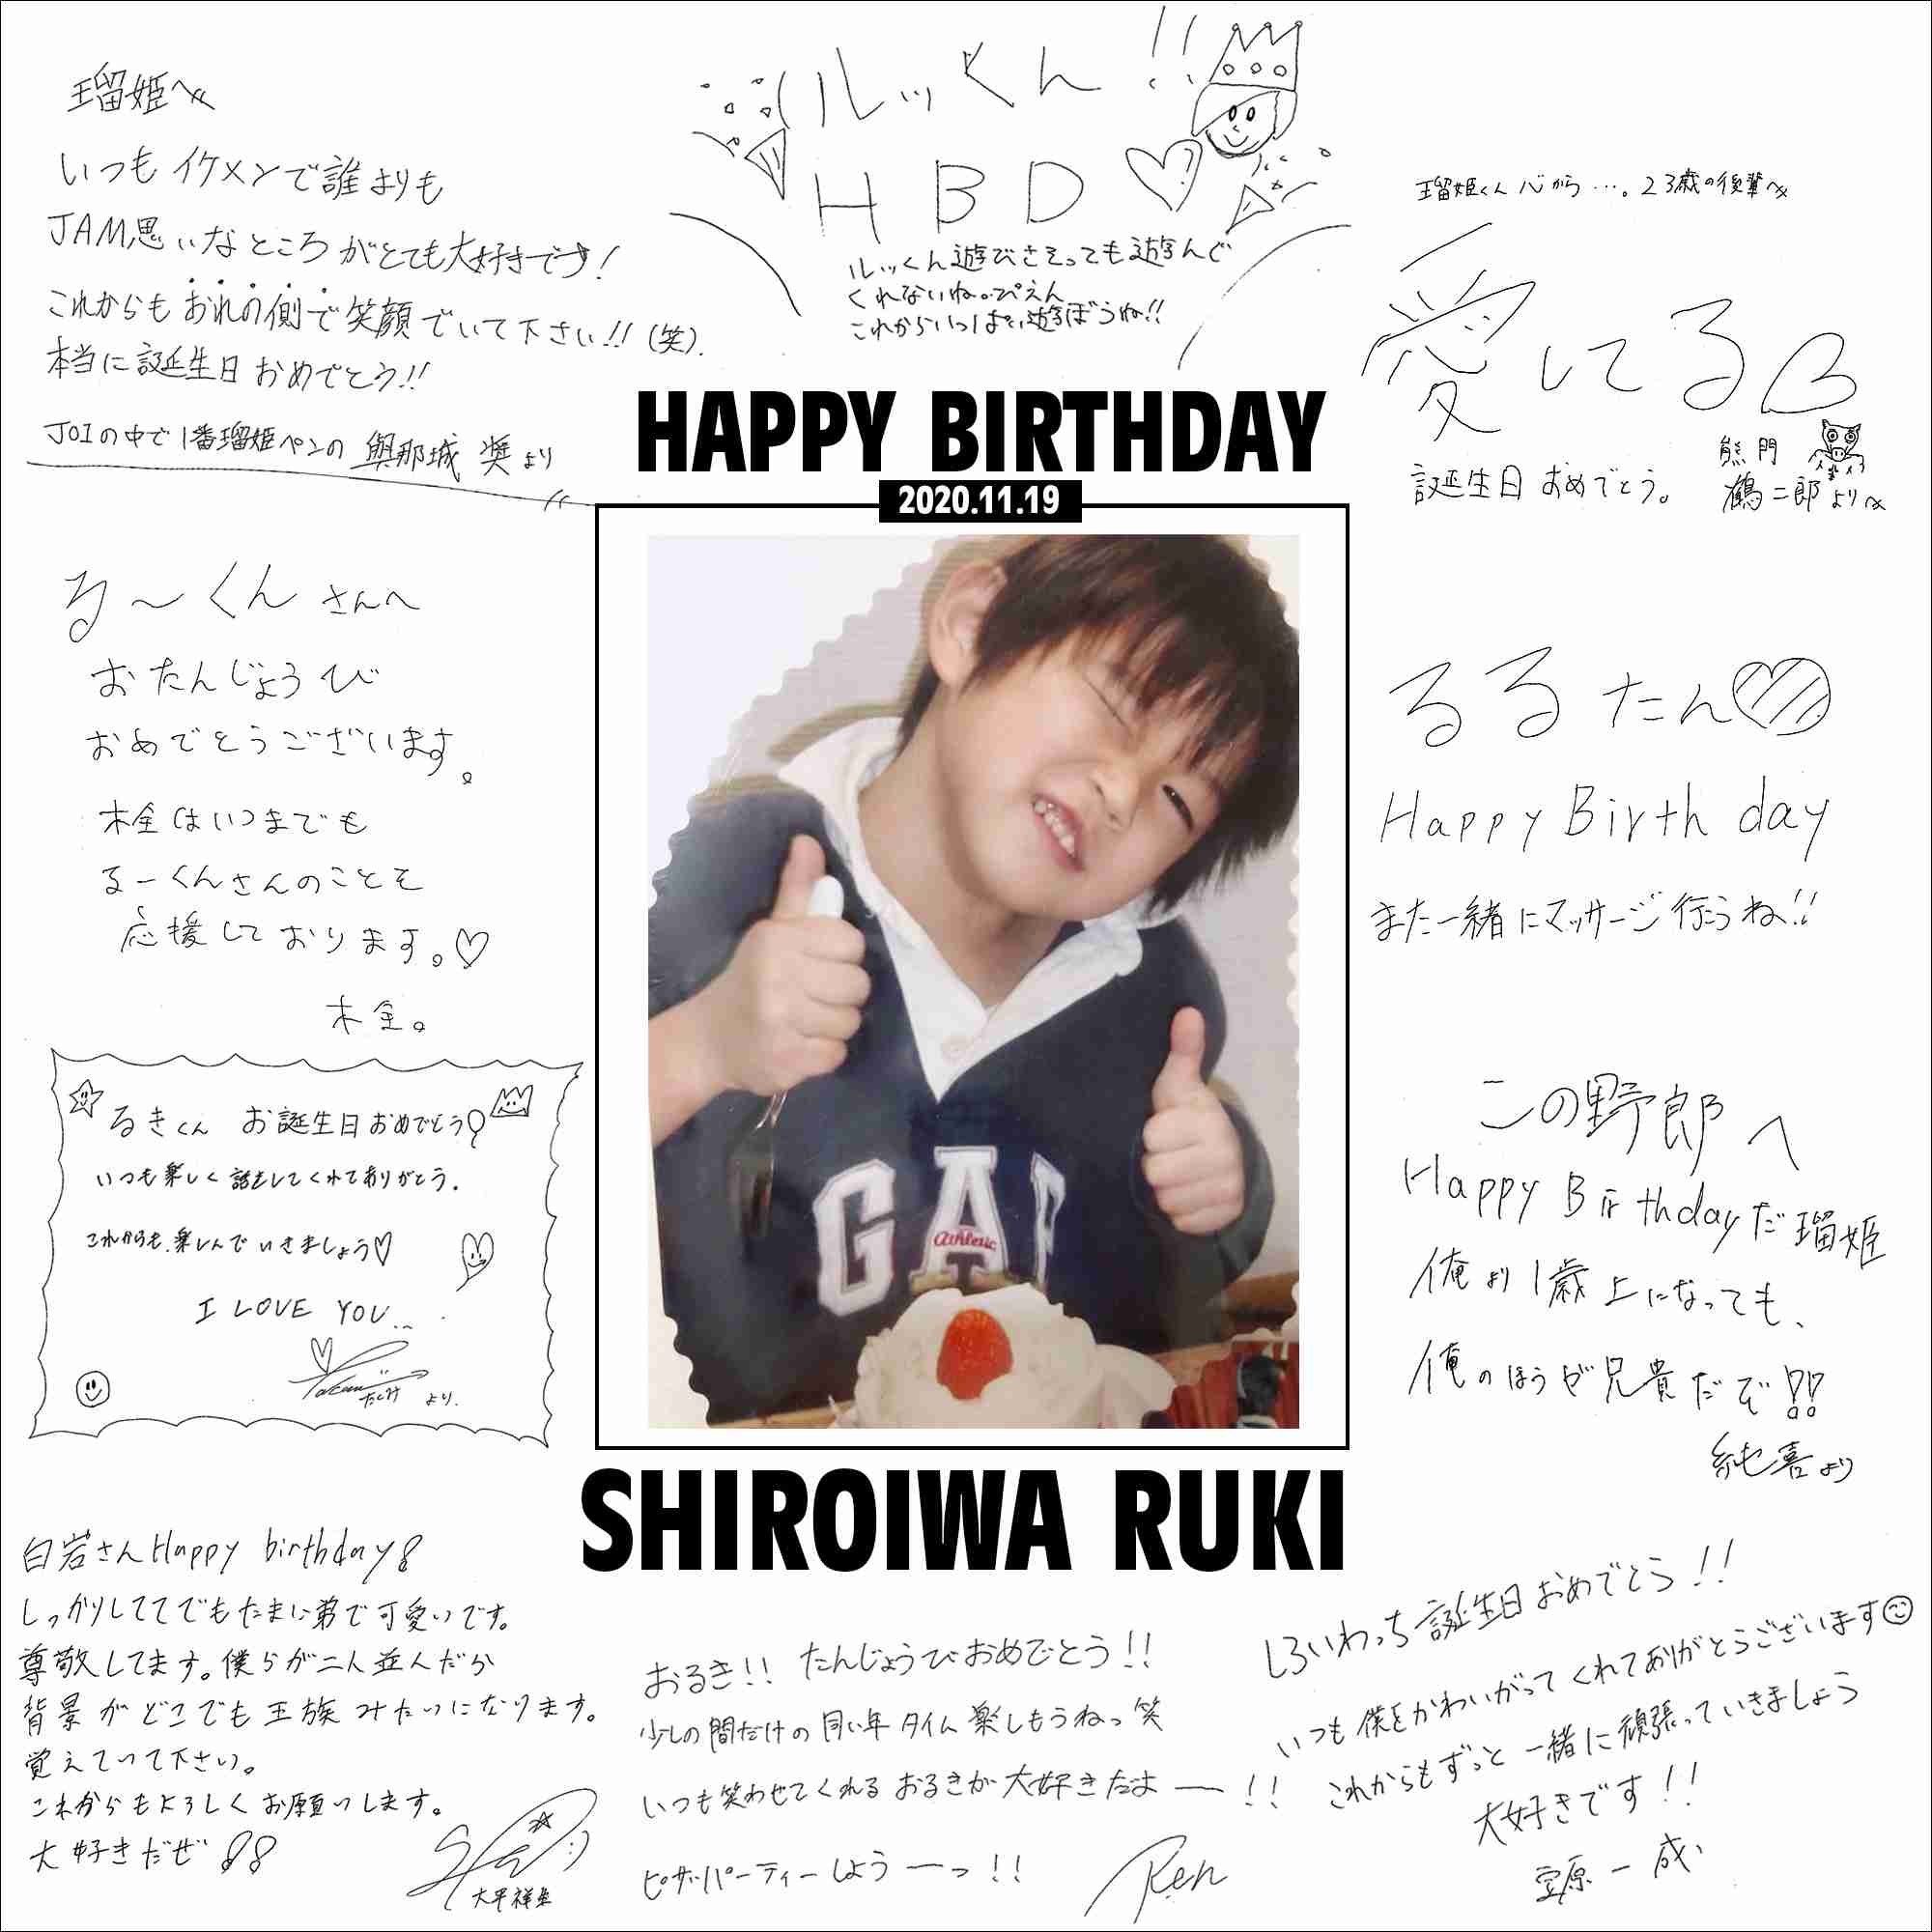 瑠姫へ
いつもイケメンで誰よりも
JAM思いなところがとても大好きです!
これからもおれの側で笑顔でいて下さい!!(笑).
本当に誕生日おめでとう!!
JO1の中で1番瑠姫ペンの 與那城 奨より
ルッくん!!
HBD♡
ルッくん遊びさそっても遊んで
くれないね。ぴえん
これからいっぱい遊ぼうね!!
瑠姫くん 心から…。23歳の後輩へ
愛してる
誕生日おめでとう。
熊門
鶴二郎より
HAPPY BIRTHDAY
2020.11.19
る〜くんさんへ
おたんじょうび
おめでとうございます。
木全はいつまでも
るーくんさんのことを
応援しております。♡
木全。
るるたん♡
Happy Birthday
また一緒にマッサージ行こうね!!
GAP
Athletic
るきくん お誕生日おめでとう!
いつも楽しく話をしてくれてありがとう.
これからも、楽しんでいきましょう♡
I LOVE YOU...
たくみ より.
この野郎へ
Happy Birthdayだ瑠姫
俺より1歳上になっても、
俺のほうが兄貴だぞ!!
純喜より
SHIROIWA RUKI
白岩さんHappy birthday!
しっかりしててでもたまに弟で可愛いです。
尊敬してます。僕らが二人並んだら
背景がどこでも王族みたいになります。
覚えていて下さい。
これからもよろしくお願いします。
大好きだぜ!!
大平祥生
おるき!! たんじょうびおめでとう!!
少しの間だけの同い年タイム楽しもうねっ笑
いつも笑わせてくれるおるきが大好きだよー!!
ピザパーティーしようーっ!!
Ren
しろいわっち誕生日おめでとう!!
いつも僕をかわいがってくれてありがとうございます
これからもずっと一緒に頑張っていきましょう
大好きです!!
金原一成